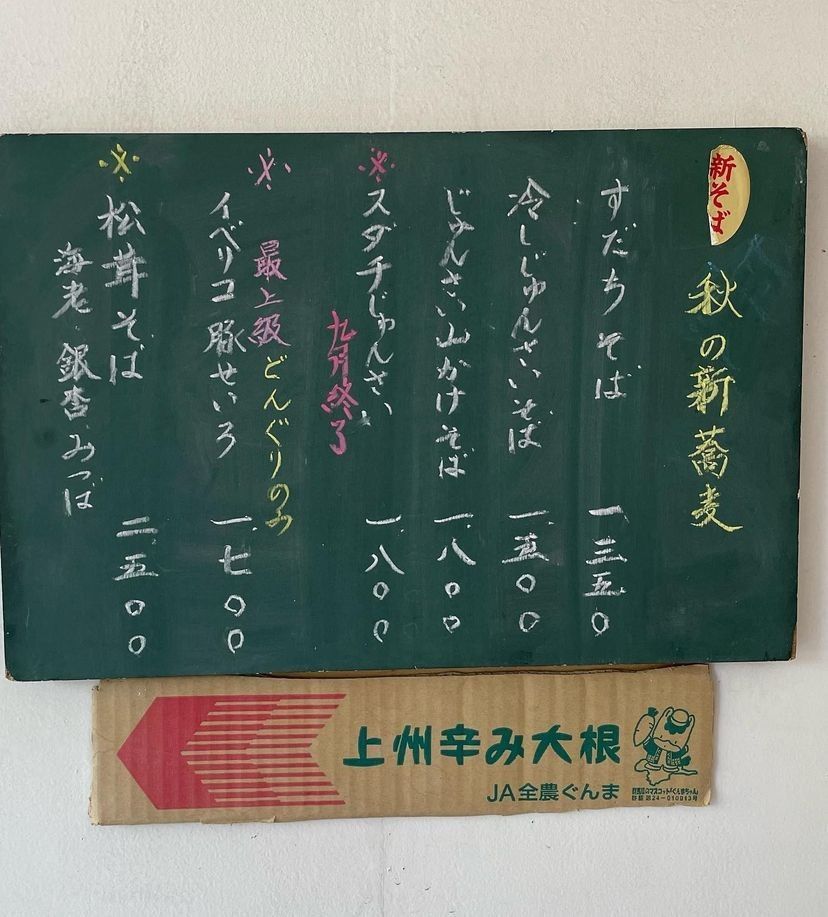 新そば
秋の新蕎麦
すだちそば 一、三五〇
冷しじゅんさいそば 一、五〇〇
じゅんさい山かけそば 一、八〇〇
※スダチじゅんさい 一、八〇〇
九月終了
※最上級どんぐりのみ
イベリコ豚せいろ 一、七〇〇
※松茸そば 二、五〇〇
海老・銀杏・みつば
上州辛み大根
JA全農ぐんま
群馬県のマスコット「ぐんまちゃん」